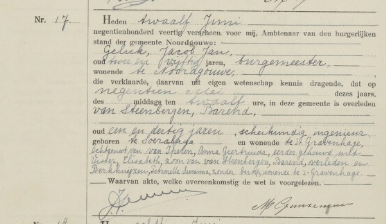 Nr. 17. Heden twaalf Juni
negentienhonderd veertig verscheen voor mij, Ambtenaar van den burgerlijken
stand der gemeente Noordgouwe:
Geluk, Jacob Jan,
oud twee en vijftig jaren, burgemeester
wonende te Noordgouwe,
Die verklaarde, daarvan uit eigen wetenschap kennis dragende, dat op
negentien dezes jaars,
des middags ten twaalf ure, in deze gemeente is overleden
van Steenbergen, Barend,
oud een en dertig jaren, scheikundig ingenieur
geboren te en wonende te 's-Gravenhage,
echtgenoot van van Tholen, Anna Geertruida, eerder
Elisabeth, zoon van van Steenbergen, Barend, overleden en
zonder beroep, wonende te 's-Gravenhage
Waarvan akte, welke overeenkomstig de wet is voorgelezen.